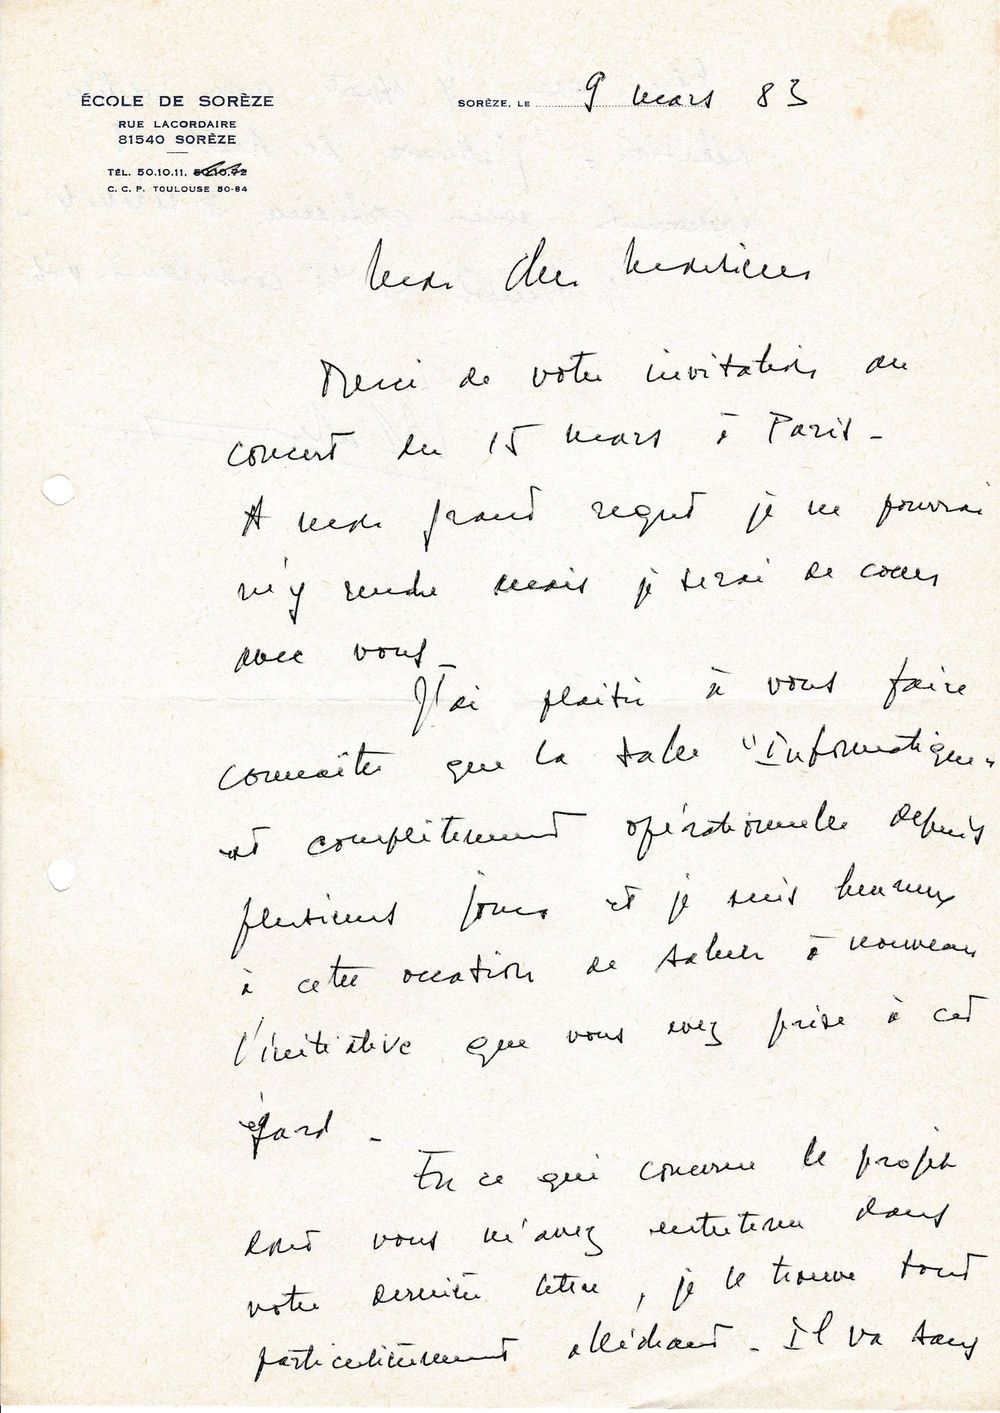 ÉCOLE DE SORÈZE
RUE LACORDAIRE
81540 SORÈZE
TÉL. 50.10.11. 50.10.72
C. C. P. TOULOUSE 50-84
SORÈZE, LE 9 mars 83
Mon cher Monsieur
Merci de votre invitation au
concert du 15 mars à Paris -
A mon grand regret je ne pourrai
m'y rendre mais je serai de coeur
avec vous -
J'ai plaisir à vous faire
connaître que la salle "Informatique"
est complètement opérationnelle depuis
plusieurs jours et je suis heureux
à cette occasion de saluer à nouveau
l'initiative que vous avez prise à cet
égard -
En ce qui concerne le projet
dont vous m'avez entretenu dans
votre dernière lettre, je le trouve tout
particulièrement alléchant - Il va sans